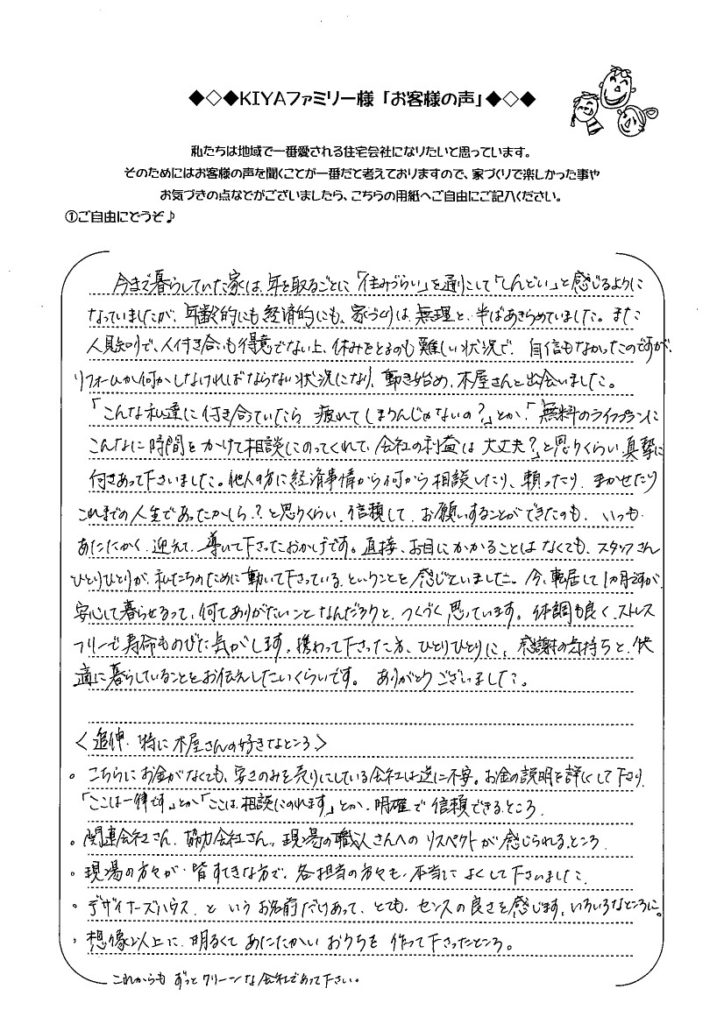 ◆◇◆KIYAファミリー様「お客様の声」◆◇◆
私たちは地域で一番愛される住宅会社になりたいと思っています。
そのためにはお客様の声を聞くことが一番だと考えておりますので、家づくりで楽しかった事や
お気づきの点などがございましたら、こちらの用紙へご自由にご記入ください。
①ご自由にどうぞ♪
今まで暮らしていた家は、年を取るごとに「住みづらい」を通りこして「しんどい」と感じるように
なっていましたが、年齢的にも経済的にも、家づくりは無理と、半ばあきらめていました。また
人見知りで、人付き合いも得意でない上、休みをとるのも難しい状況で、自信もなかったのですが、
リフォームか何かしなければならない状況になり、動き始め、木屋さんと出会いました。
「こんな私達に付き合っていたら 疲れてしまうんじゃないの?」とか、「無料のライフプランに
こんなに時間をかけて相談にのってくれて、会社の利益は大丈夫?」と思うくらい、真摯に
付きあって下さいました。他人の方に経済事情から何から相談したり、頼ったり、まかせたり
これまでの人生であったかしら?と思うくらい、信頼して、お願いすることができたのも、いつも
あたたかく迎えて、導いて下さったおかげです。直接、お目にかかることはなくても、スタッフさん
ひとりひとりが、私たちのために動いて下さっている、ということを感じていました。今、転居して1カ月ですが、
安心して暮らせるって、何てありがたいことなんだろうと、つくづく思っています。体調も良く、ストレス
フリーで寿命ものびた気がします。携わって下さった方、ひとりひとりに、感謝の気持ちと、快
適に暮らしていることをお伝えしたいくらいです。 ありがとうございました。
〈追伸. 特に木屋さんの好きなところ〉
。こちらにお金がなくても、安さのみを売りにしている会社は逆に不安。お金の説明を詳しくして下さり、
「ここは一律です」とか「ここは、相談にのれます」とか、明確で信頼できるところ。
。関連会社さん、協力会社さん、現場の職人さんへのリスペクトが感じられるところ
。現場の方々が皆すてきな方で、各担当の方々も、本当によくして下さいました
。デザイナーズハウス、というお名前だけあって、とてもセンスの良さを感じます、いろいろなところに。
。想像以上に、明るくてあたたかいおうちを作って下さったところ。
これからもずっとクリーンな会社であって下さい。